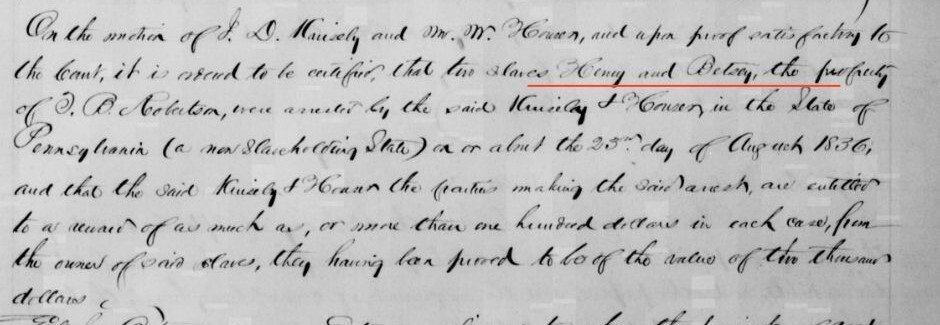 On the motion of J. D. Knisely and M. W. Houser, and upon proof satisfactory to
the Court, it is ordered to be certified, that two slaves Henry and Betsey, the property
of T. B. Robertson, were arrested by the said Knisely & Houser, in the State of
Pennsylvania (a non Slaveholding State) on or about the 25th day of August 1836,
and that the said Knisely & Houser the parties making the said arrest, are entitled
to a reward of as much as, or more than one hundred dollars in each case, from
the owner of said slaves, they having been proved to be of the value of two thousand
dollars.